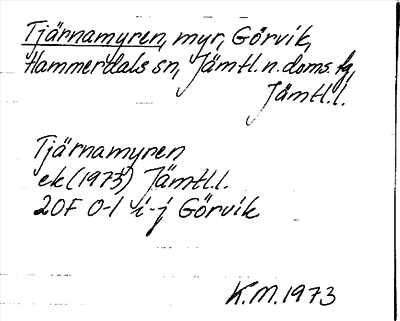 Tjärnamyren, myr, Görvik,
Hammerdals sn, Jämtl. n. doms. fg,
Jämtl. l.
Tjärnamyren
ek (1973) Jämtl. l.
20F 0-1 i-j Görvik
K.M. 1973